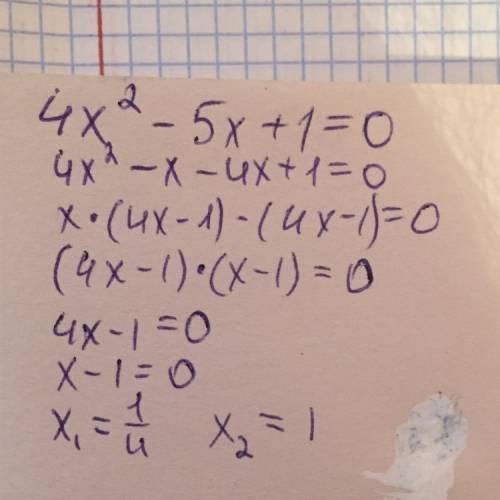 4x² - 5x + 1 = 0
4x² - x - 4x + 1 = 0
x · (4x - 1) - (4x - 1) = 0
(4x - 1) · (x - 1) = 0
4x - 1 = 0
x - 1 = 0
x₁ = 1/4   x₂ = 1